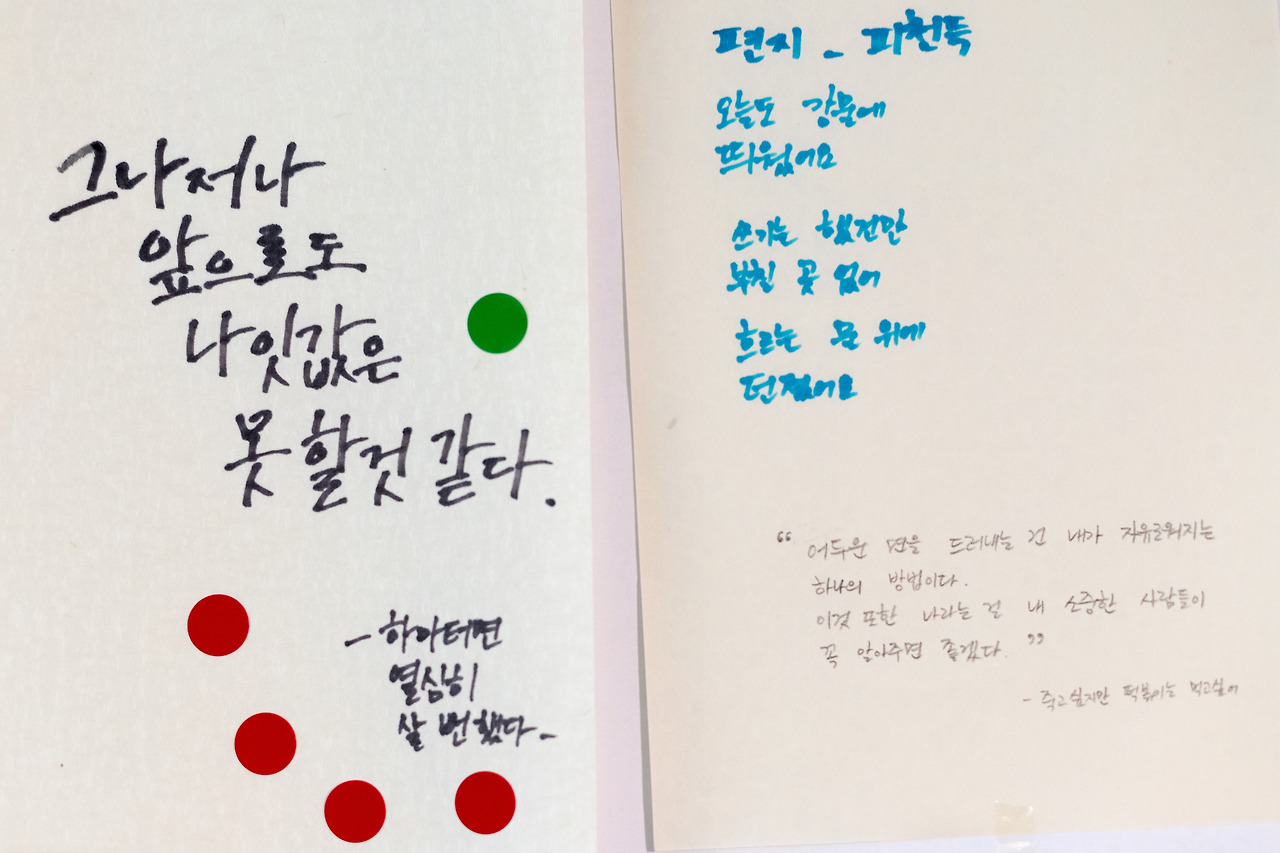 그나저나
앞으로도
나잇값은
못 할것 같다.
- 하마터면
열심히
살 뻔했다 -
편지 - 피천득
오늘도 강물에
띄웠어요
쓰기는 했건만
부칠 곳 없어
흐르는 물 위에
던졌어요
“ 어두운 면을 드러내는 건 내가 자유로워지는
하나의 방법이다.
이것 또한 나라는 걸 내 소중한 사람들이
꼭 알아주면 좋겠다. ”
- 죽고싶지만 떡볶이는 먹고싶어